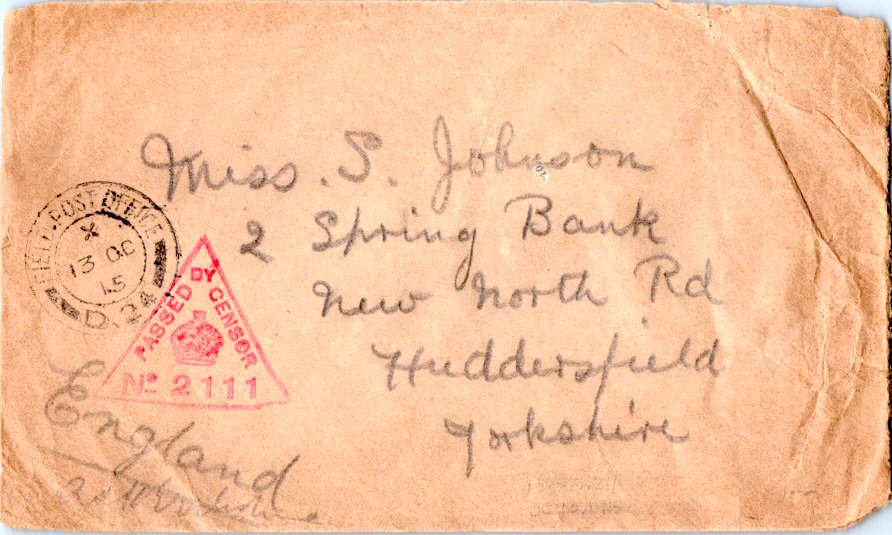 Miss. S. Johnson
2 Spring Bank
New North Rd
Huddersfield
Yorkshire
England
FIELD POST OFFICE
X
13 OC
15
D.24
PASSED BY CENSOR
No 2111